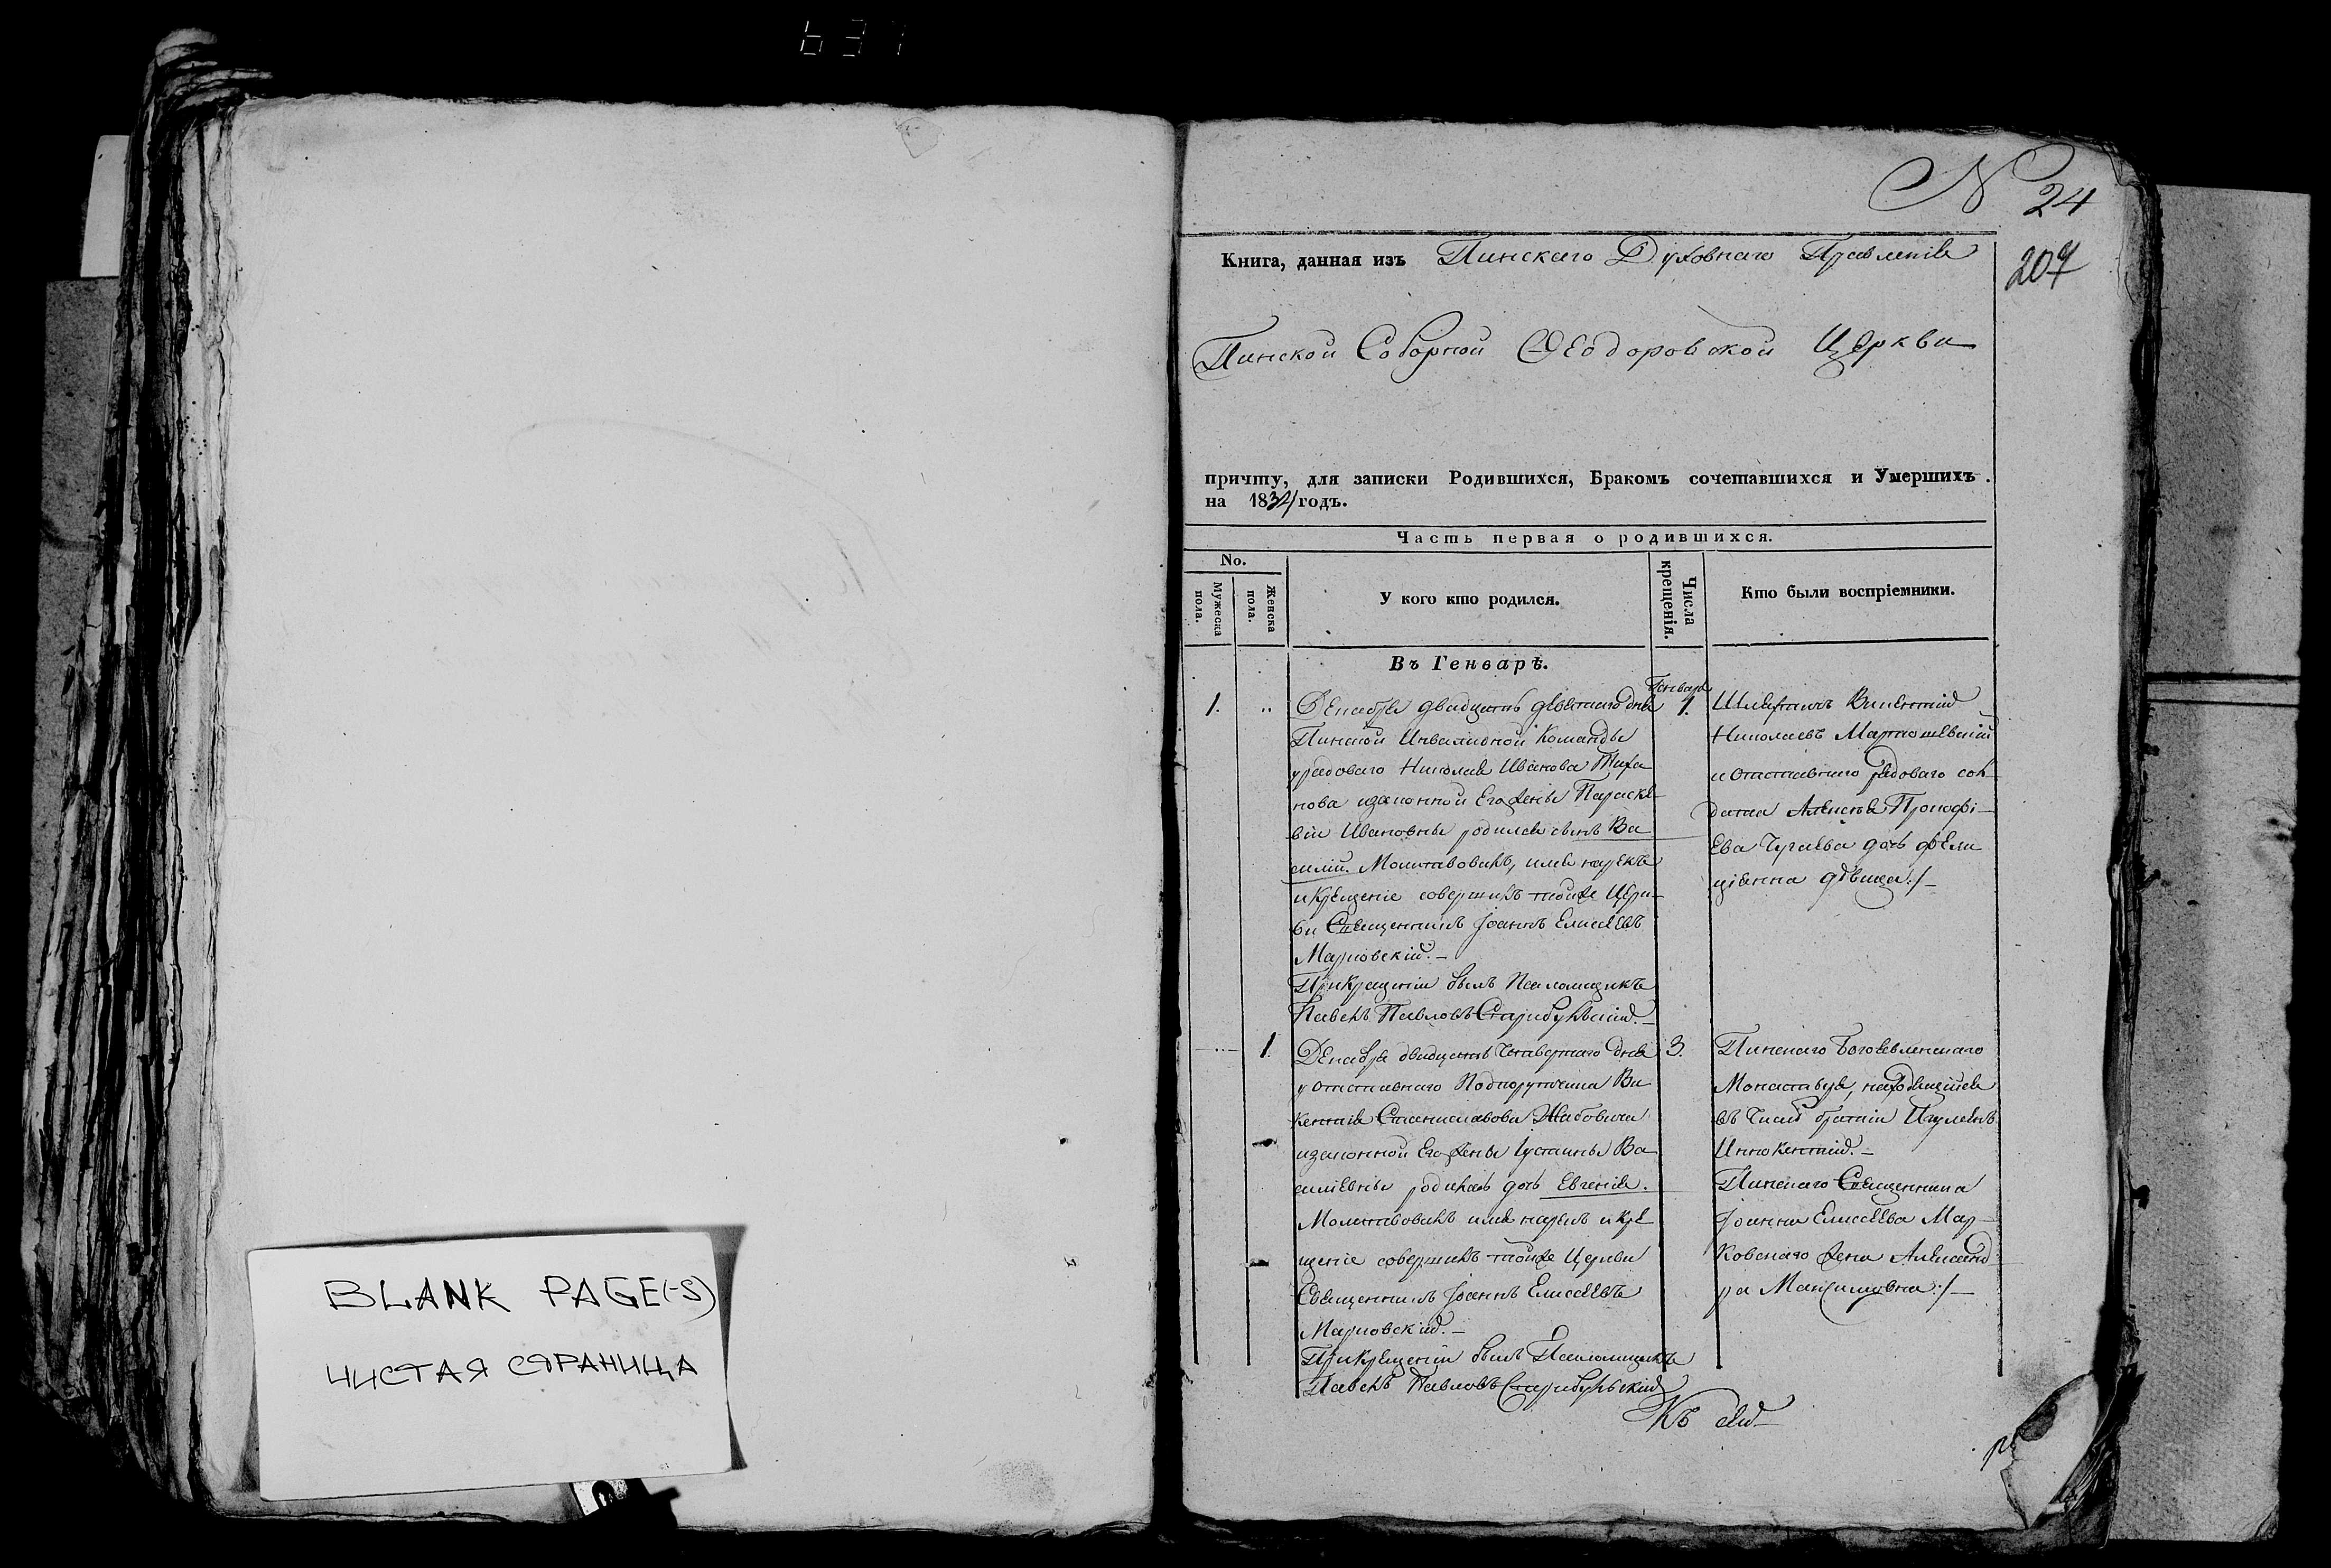 637
N 24
207
Книга, данная изъ Пинскаго Духовнаго Правленія
Пинской Соборной Ѳеодоровской Церкви
причту, для записки Родившихся, Бракомъ сочетавшихся и Умершихъ
на 1834 годъ.
Часть первая о родившихся.
No.
Мужеска пола.
Женска пола.
У кого кто родился.
Числа крещенія.
Кто были воспріемники.
Въ Генварѣ.
Генваря
1.
Декабря двадцать девятаго дня
Пинской Инвалидной Команды
урядоваго Николая Иванова
нова изаконной Его жены Параске-
віи Ивановны родился сынъ Ва
силій. Молитвовалъ, имя нарекъ
и Крещеніе совершилъ тойже Церк-
ви Священникъ Іоаннъ Елисеевъ
Марковскій.-
При Крещеніи былъ Псаломщикъ
Павелъ Павловъ
1.
Шляхтичъ Викентій
Николаевъ
и Отставнаго рядоваго сол-
дата Алексея Прокофі-
ева Чугаева дочь Фели
ціанна дѣвица:/-
1.
Декабря двадцать Четвертаго дня
у Отставнаго Подпорутчика Ви
кентія Станиславова
изаконной Его жены Іустины Ва
силіевны родилась дочь Евгенія.
Молитвовалъ имя нарекъ и Кре
щеніе совершилъ тойже Церкви
Священникъ Іоаннъ Елисеевъ
Марковскій.-
При Крещеніи былъ Псаломщикъ
Павелъ Павловъ
3.
Пинскаго Богоявленскаго
Монастыря, находящійся
въ Числѣ братіи Игуменъ
Иннокентій.-
Пинскаго Священника
Іоанна Елисеева Мар-
ковскаго жена Александ
ра Максимовна:/-
Къ сей
BLANK PAGE(-S)
ЧИСТАЯ СТРАНИЦА